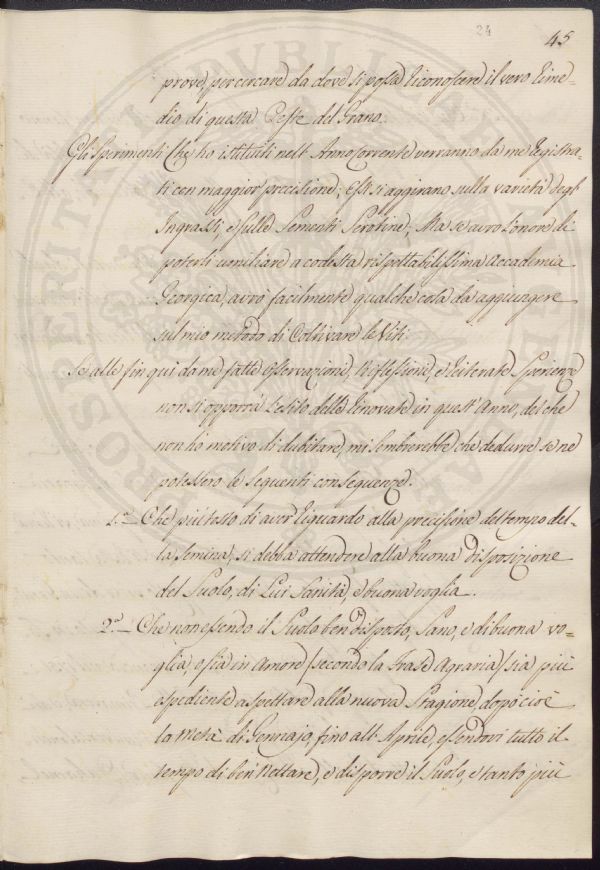 24
45
prove, per cercare da dove si possa riconoscere il vero rime-
dio di questa Peste del Grano.
Gli Sperimenti che ho istituiti nell' Anno corrente verranno da me registra-
ti con maggior precisione; Essi si aggirano sulla varietà degl'
Ingrassi, e sulle Sementi Serotine; Ma se avrò l'onore di
poterli umiliare a codesta rispettabilissima Accademia
Georgica, avrò facilmente qualche cosa da aggiungere
sul mio metodo di Coltivare le Viti.
Se alle fin qui da me fatte osservazioni, riflessioni, e reiterate Sperienze
non si opporrà l'esito delle rinovate in quest' Anno, del che
non hò motivo di dubitare, mi sembrerebbe che dedurre se ne
potessero le seguenti conseguenze.
1.ª Che più tosto di aver riguardo alla precisione del tempo del-
la semina, si debba attendere alla buona disposizione
del Suolo, di Lui Sanità, e buona voglia.
2.ª Che non essendo il Suolo ben disposto, Sano, e di buona vo-
glia, o sia in Amore /secondo la Frase Agraria/ sia più
espediente aspettare alla nuova Stagione, dopo cioè
la metà di Gennajo, fino all' Aprile, essendovi tutto il
tempo di ben Nettare, e disporre il Suolo, e tanto più